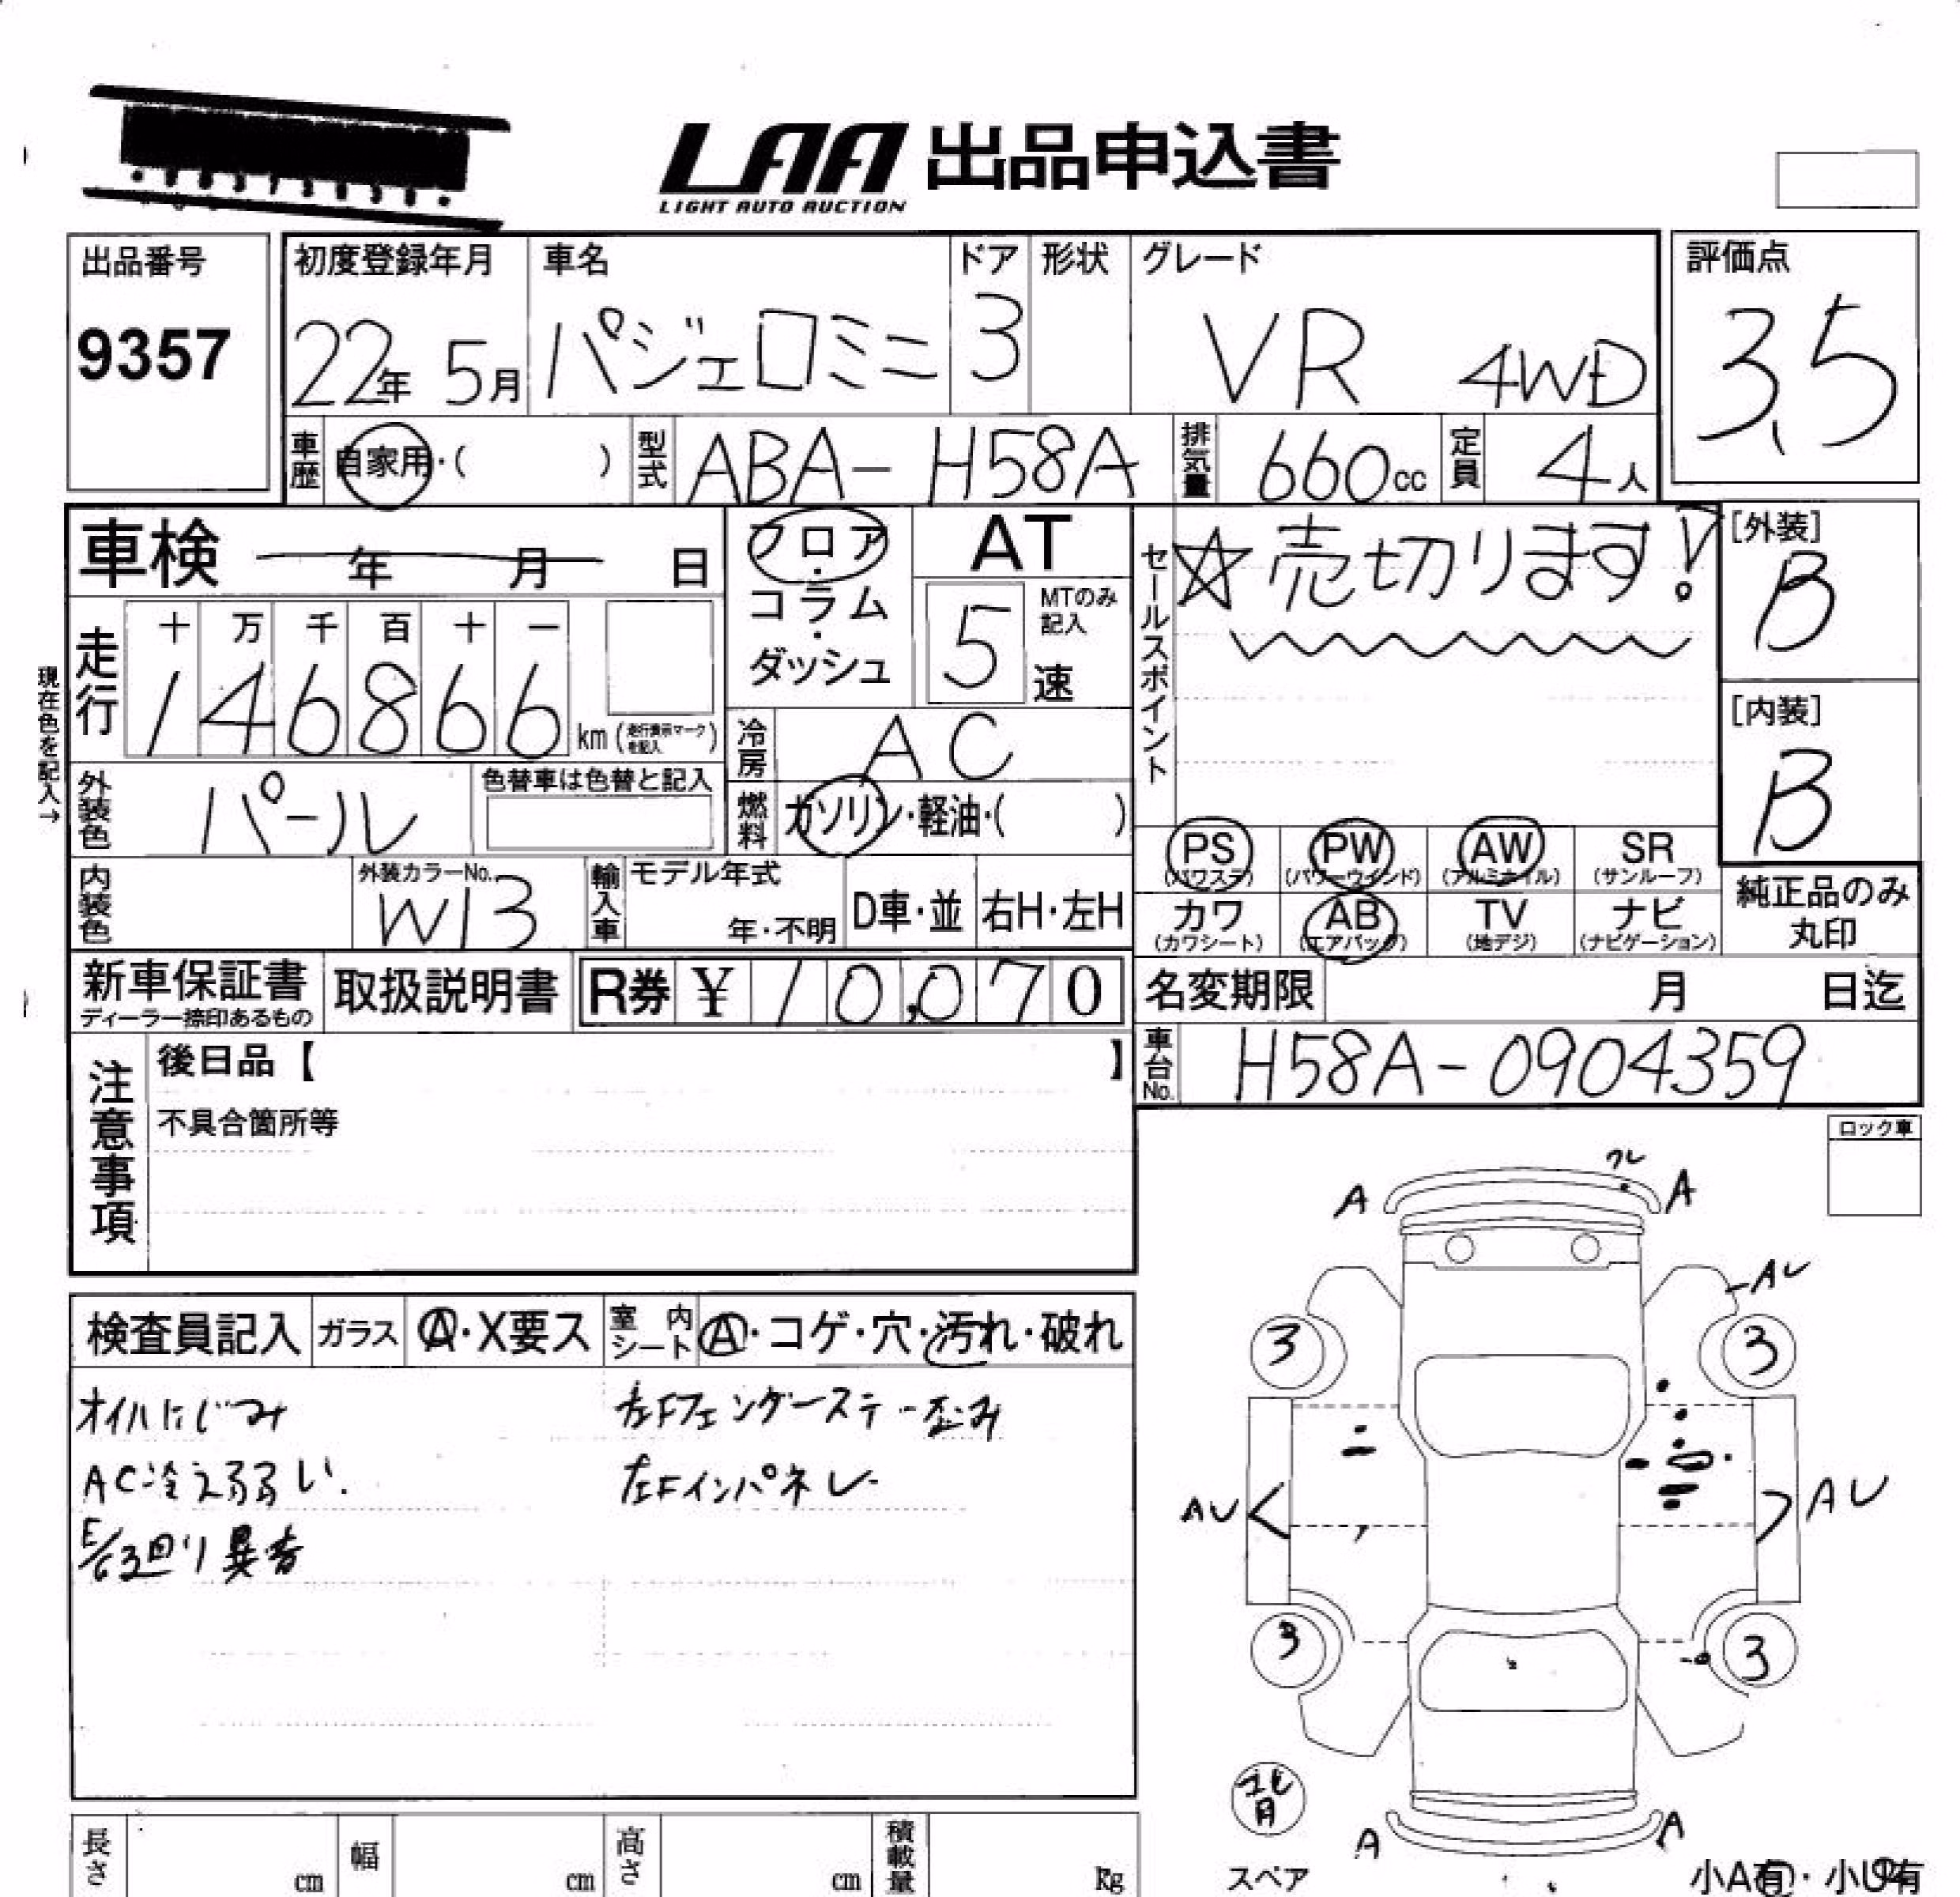 LAA 出品申込書
LIGHT AUTO AUCTION
出品番号
9357
初度登録年月
22年 5月
車名
パジェロミニ
ドア
3
形状
グレード
VR 4WD
評価点
3.5
車歴 自家用・( )
型式 ABA-H58A
排気量 660cc
定員 4人
車検 年 月 日
フロア・コラム・ダッシュ
AT
5速
MTのみ記入
セールスポイント
☆売切ります!
[外装]
B
[内装]
B
現在色を記入→
走行
十 万 千 百 十 一
1 4 6 8 6 6 km (走行表示マークを記入)
冷房 AC
外装色 パール
色替車は色替と記入
燃料 ガソリン・軽油・( )
内装色
外装カラーNo. W13
輸入車
モデル年式
年・不明
D車・並
右H・左H
PS (パワステ)
PW (パワーウインド)
AW (アルミホイル)
SR (サンルーフ)
カワ (カワシート)
AB (エアバック)
TV (地デジ)
ナビ (ナビゲーション)
純正品のみ丸印
新車保証書
ディーラー捺印あるもの
取扱説明書
R券 ¥ 10,070
名変期限 月 日迄
車台No. H58A-0904359
注意事項
後日品【 】
不具合箇所等
ロック車
検査員記入
ガラス A・X要ス
室内シート A・コゲ・穴・汚れ・破れ
オイルにじみ
AC冷え弱い.
E/G回り異音
左Fフェンダーステー歪み
左Fインパネレ-
ワレ
A
A
AU
3
3
AU
AU
3
3
A
A
スペア
小A有・小U有
長さ cm
幅 cm
高さ cm
積載量 Kg